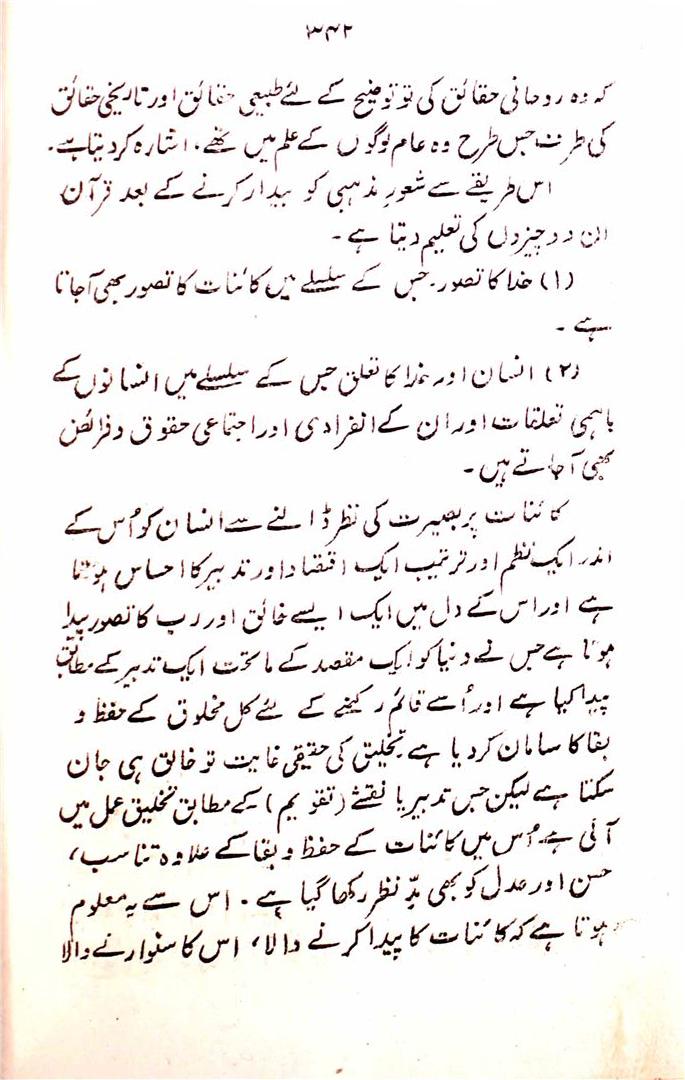 ۳۴۲
کہ وہ روحانی حقائق کی تو توضیح کے لئے طبیعی حقائق اور تاریخی حقائق
کی طرف جس طرح وہ عام لوگوں کے علم میں تھے، اشارہ کر دیتا ہے۔
اس طریقے سے شعورِ مذہبی کو بیدار کرنے کے بعد قرآن
ان دو چیزوں کی تعلیم دیتا ہے۔
(۱) خدا کا تصور۔ جس کے سلسلے میں کائنات کا تصور بھی آجاتا
ہے۔
(۲) انسان اور خدا کا تعلق جس کے سلسلے میں انسانوں کے
باہمی تعلقات اور ان کے انفرادی اور اجتماعی حقوق و فرائض
بھی آجاتے ہیں۔
کائنات پر بصیرت کی نظر ڈالنے سے انسان کو اُس کے
اندر ایک نظم اور ترتیب ایک اقتصاد اور تدبیر کا احساس ہوتا
ہے اور اس کے دل میں ایک ایسے خالق اور رب کا تصور پیدا
ہوتا ہے جس نے دنیا کو ایک مقصد کے ماتحت ایک تدبیر کے مطابق
پیدا کیا ہے اور اُسے قائم رکھنے کے لئے کل مخلوق کے حفظ و
بقا کا سامان کر دیا ہے تخلیق کی حقیقی غایت تو خالق ہی جان
سکتا ہے لیکن جس تدبیر یا نقشے (تقویم) کے مطابق تخلیق عمل میں
آئی ہے۔ اُس میں کائنات کے حفظ و بقا کے علاوہ تناسب،
حسن اور عدل کو بھی مدِّ نظر رکھا گیا ہے۔ اس سے یہ معلوم
ہوتا ہے کہ کائنات کا پیدا کرنے والا، اس کا سنوارنے والا